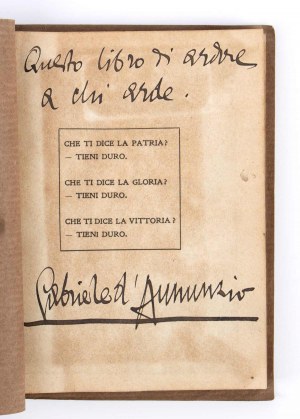 Questo libro di ardore
a chi arde.
CHE TI DICE LA PATRIA?
— TIENI DURO.
CHE TI DICE LA GLORIA?
— TIENI DURO.
CHE TI DICE LA VITTORIA?
— TIENI DURO.
Gabriele d'Annunzio